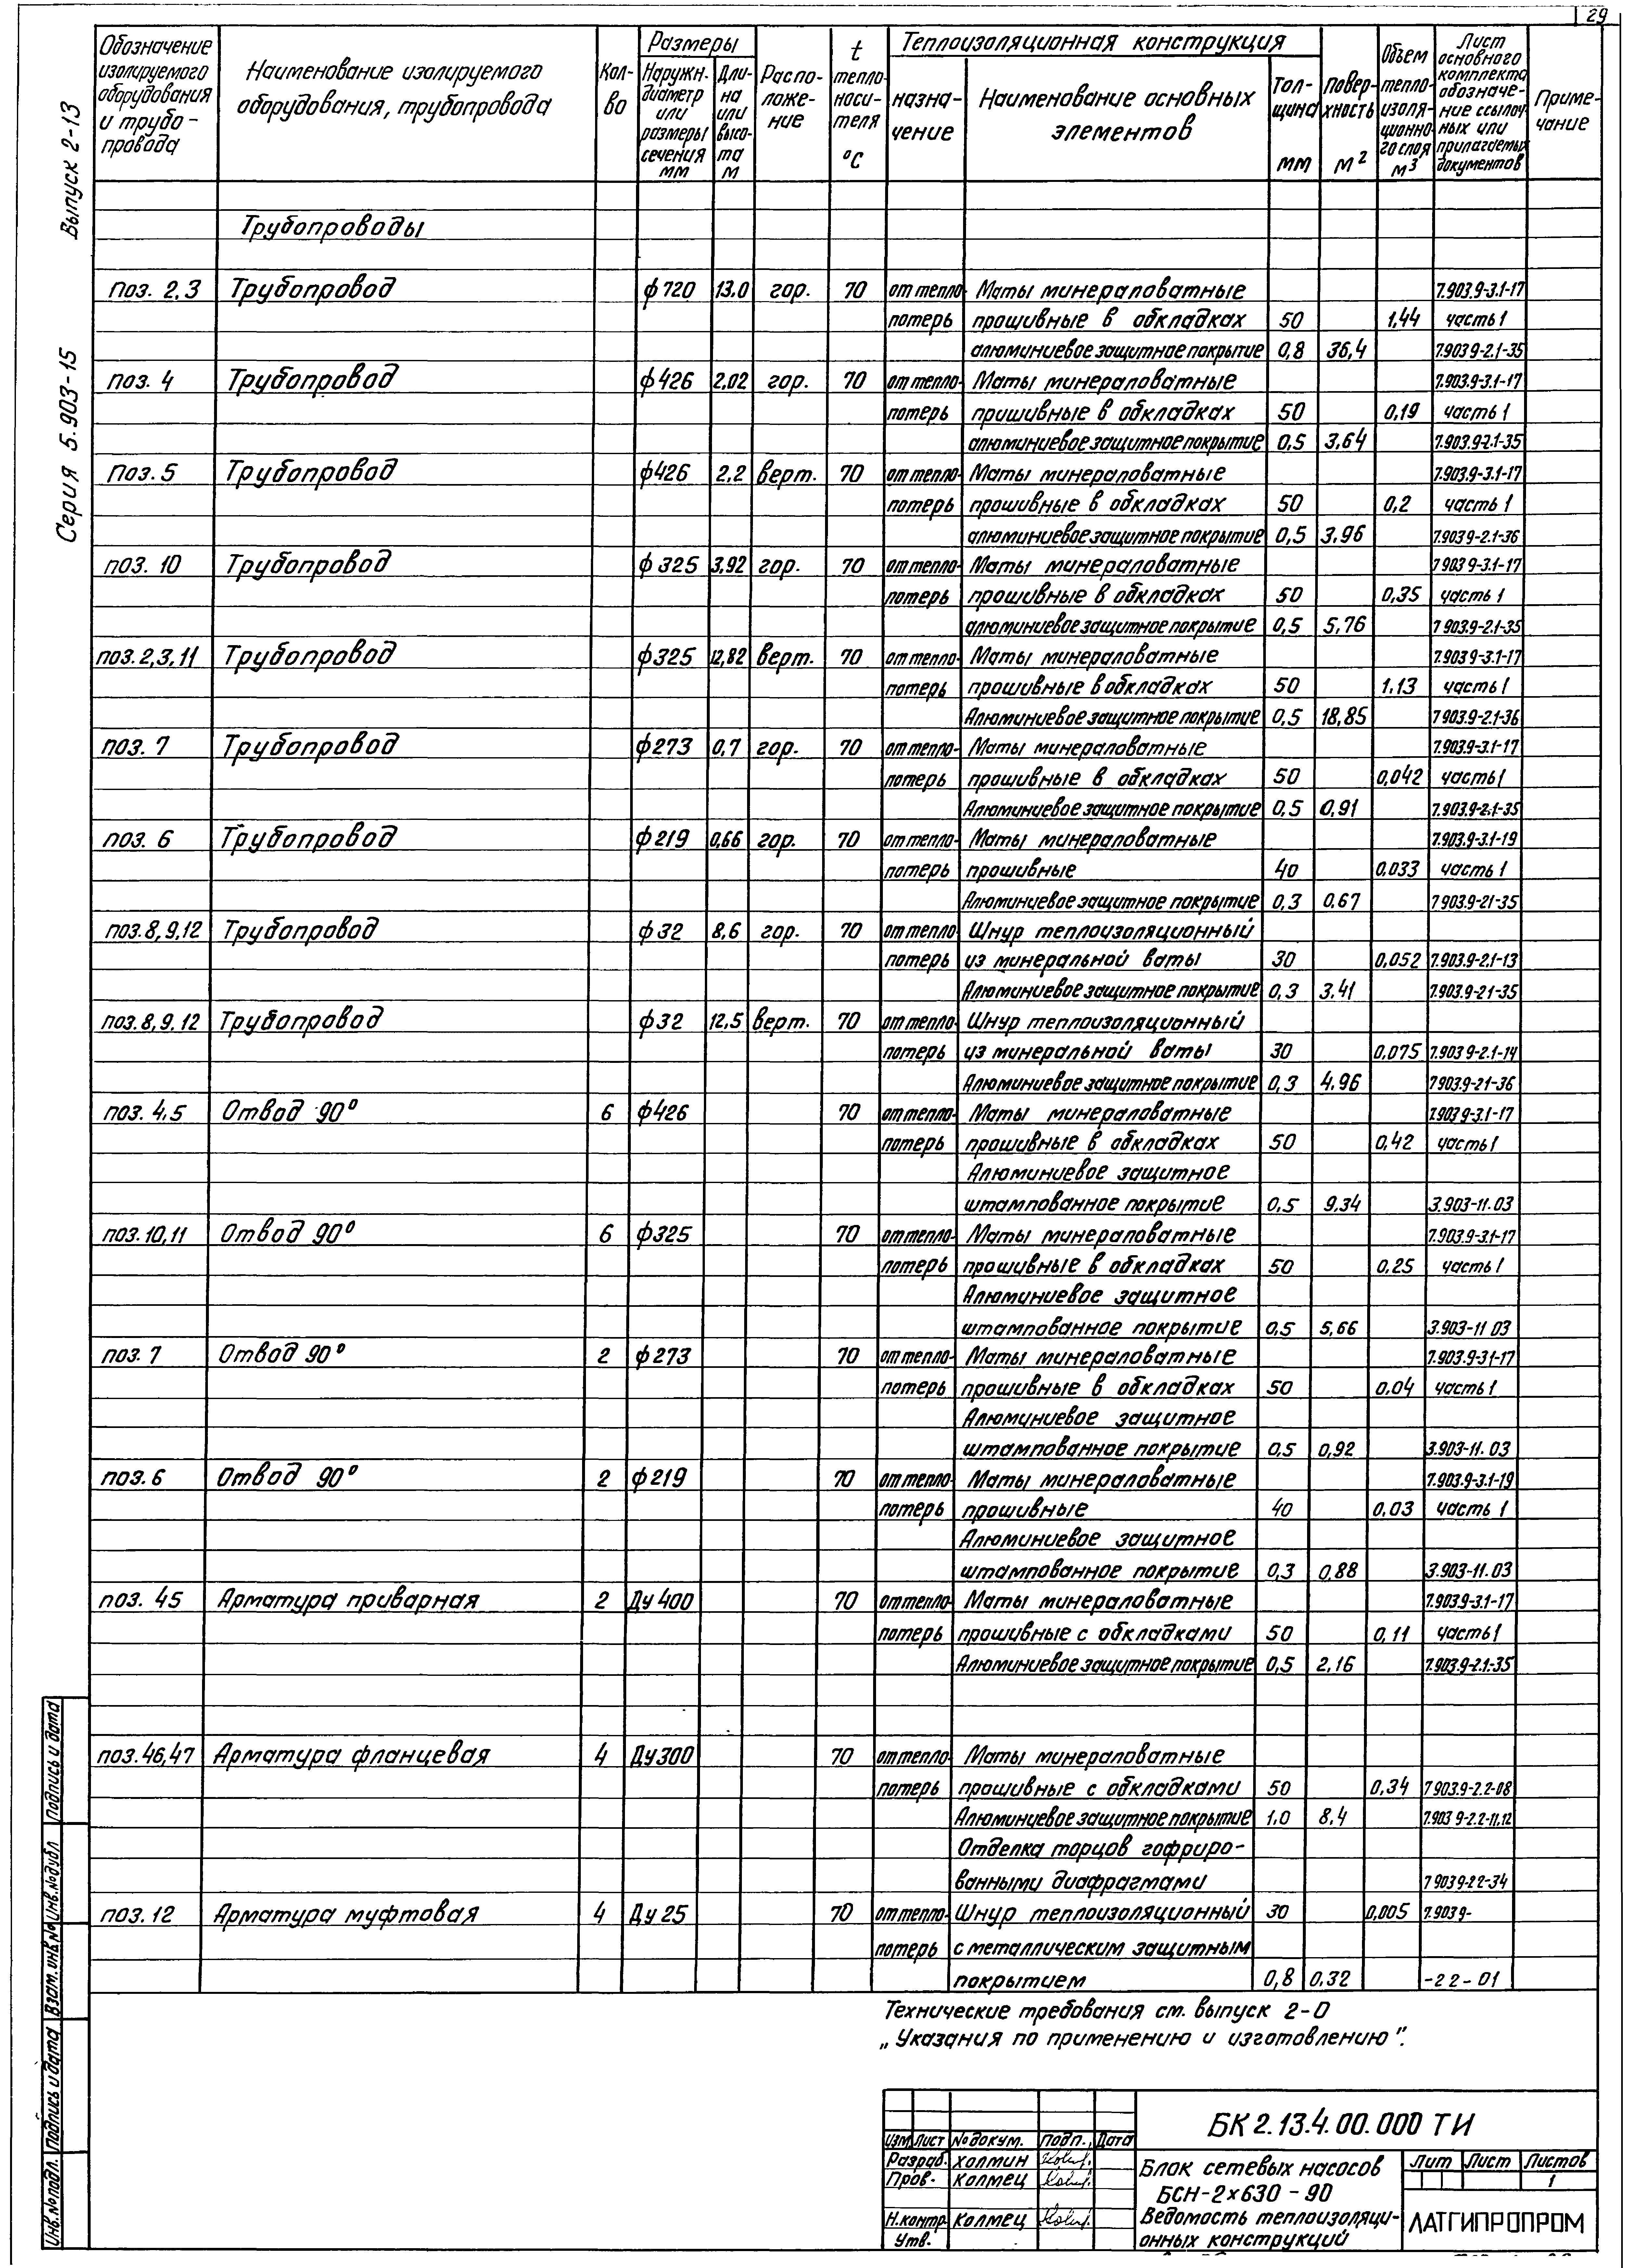 29
Выпуск 2-13
Серия 5.903-15
Обозначение изолируемого оборудования и трубо-провода
Наименование изолируемого оборудования, трубопровода
Кол-во
Размеры
Наружн. диаметр или размеры сечения мм
Дли-на или высо-та м
Распо-ложе-ние
t тепло-носи-теля °С
Теплоизоляционная конструкция
назна-чение
Наименование основных элементов
Тол-щина мм
Повер-хность м²
Объем тепло-изоля-ционно-го слоя м³
Лист основного комплекта обозначе-ние ссылоч-ных или прилагаемых документов
Приме-чание
Трубопроводы
поз. 2,3 Трубопровод ф720 13.0 гор. 70 от тепло- Маты минераловатные 7.903.9-3.1-17
потерь прошивные в обкладках 50 1,44 часть 1
алюминиевое защитное покрытие 0,8 36,4 7.903 9-2.1-35
поз. 4 Трубопровод ф426 2,02 гор. 70 от тепло- Маты минераловатные 7.903.9-3.1-17
потерь пришивные в обкладках 50 0,19 часть 1
алюминиевое защитное покрытие 0,5 3,64 7.903.9-2.1-35
Поз. 5 Трубопровод ф426 2,2 верт. 70 от тепло- Маты минераловатные 7.903.9-3.1-17
потерь прошивные в обкладках 50 0,2 часть 1
алюминиевое защитное покрытие 0,5 3.96 7.903 9-2.1-36
поз. 10 Трубопровод ф325 3,92 гор. 70 от тепло- Маты минераловатные 7 903 9-3.1-17
потерь прошивные в обкладках 50 0,35 часть 1
алюминиевое защитное покрытие 0,5 5,76 7 903.9-2.1-35
поз. 2,3,11 Трубопровод ф325 12,82 верт. 70 от тепло- Маты минераловатные 7.903 9-3.1-17
потерь прошивные в обкладках 50 1.13 часть 1
Алюминиевое защитное покрытие 0,5 18,85 7 903.9-2.1-36
поз. 7 Трубопровод ф273 0,7 гор. 70 от тепло- Маты минераловатные 7.903.9-3.1-17
потерь прошивные в обкладках 50 0,042 часть 1
Алюминиевое защитное покрытие 0,5 0,91 7.903.9-2.1-35
поз. 6 Трубопровод ф219 0,66 гор. 70 от тепло- Маты минераловатные 7.903.9-3.1-19
потерь прошивные 40 0.033 часть 1
Алюминиевое защитное покрытие 0,3 0,67 7 903.9-21-35
поз. 8,9,12 Трубопровод ф32 8,6 гор. 70 от тепло- Шнур теплоизоляционный
потерь из минеральной ваты 30 0,052 7.903.9-2.1-13
Алюминиевое защитное покрытие 0,3 3.41 7.903.9-21-35
поз. 8,9.12 Трубопровод ф32 12,5 верт. 70 от тепло- Шнур теплоизоляционный
потерь из минеральной ваты 30 0,075 7.903 9-2.1-14
Алюминиевое защитное покрытие 0,3 4,96 7903.9-21-36
поз. 4.5 Отвод 90° 6 ф426 70 от тепло- Маты минераловатные 7.903 9-3.1-17
потерь прошивные в обкладках 50 0,42 часть 1
Алюминиевое защитное
штампованное покрытие 0,5 9.34 3.903-11.03
поз. 10,11 Отвод 90° 6 ф325 70 от тепло- Маты минераловатные 7.903.9-3.1-17
потерь прошивные в обкладках 50 0,25 часть 1
Алюминиевое защитное
штампованное покрытие 0,5 5,66 3.903-11 03
поз. 7 Отвод 90° 2 ф273 70 от тепло- Маты минераловатные 7.903.9-31-17
потерь прошивные в обкладках 50 0,04 часть 1
Алюминиевое защитное
штампованное покрытие 0,5 0,92 3.903-11. 03
поз. 6 Отвод 90° 2 ф219 70 от тепло- Маты минераловатные 7.903.9-3.1-19
потерь прошивные 40 0.03 часть 1
Алюминиевое защитное
штампованное покрытие 0,3 0,88 3.903-11.03
поз. 45 Арматура приварная 2 Ду 400 70 от тепло- Маты минераловатные 7.903.9-3.1-17
потерь прошивные с обкладками 50 0,11 часть 1
Алюминиевое защитное покрытие 0,5 2,16 7.903.9-2.1-35
поз. 46,47 Арматура фланцевая 4 Ду 300 70 от тепло- Маты минераловатные
потерь прошивные с обкладками 50 0,34 7 903.9-2.2-08
Алюминиевое защитное покрытие 1.0 8,4 7.903 9-2.2-11,12
Отделка торцов гофриро-
ванными диафрагмами 7 903 9-22-34
поз. 12 Арматура муфтовая 4 Ду 25 70 от тепло- Шнур теплоизоляционный 30 0,005 7.903 9-
потерь с металлическим защитным
покрытием 0,8 0,32 -22-01
Технические требования см. выпуск 2-0
„Указания по применению и изготовлению".
БК 2.13.4.00.000 ТИ
Изм Лист № докум. Подп. Дата
Разраб. Холмин
Пров. Колмец
Н.контр. Колмец
Утв.
Блок сетевых насосов
БСН-2×630-90
Ведомость теплоизоляци-
онных конструкций
Лит Лист Листов
1
ЛАТГИПРОПРОМ
Инв.№ подл. Подпись и дата Взам. инв.№ Инв.№ дубл Подпись и дата